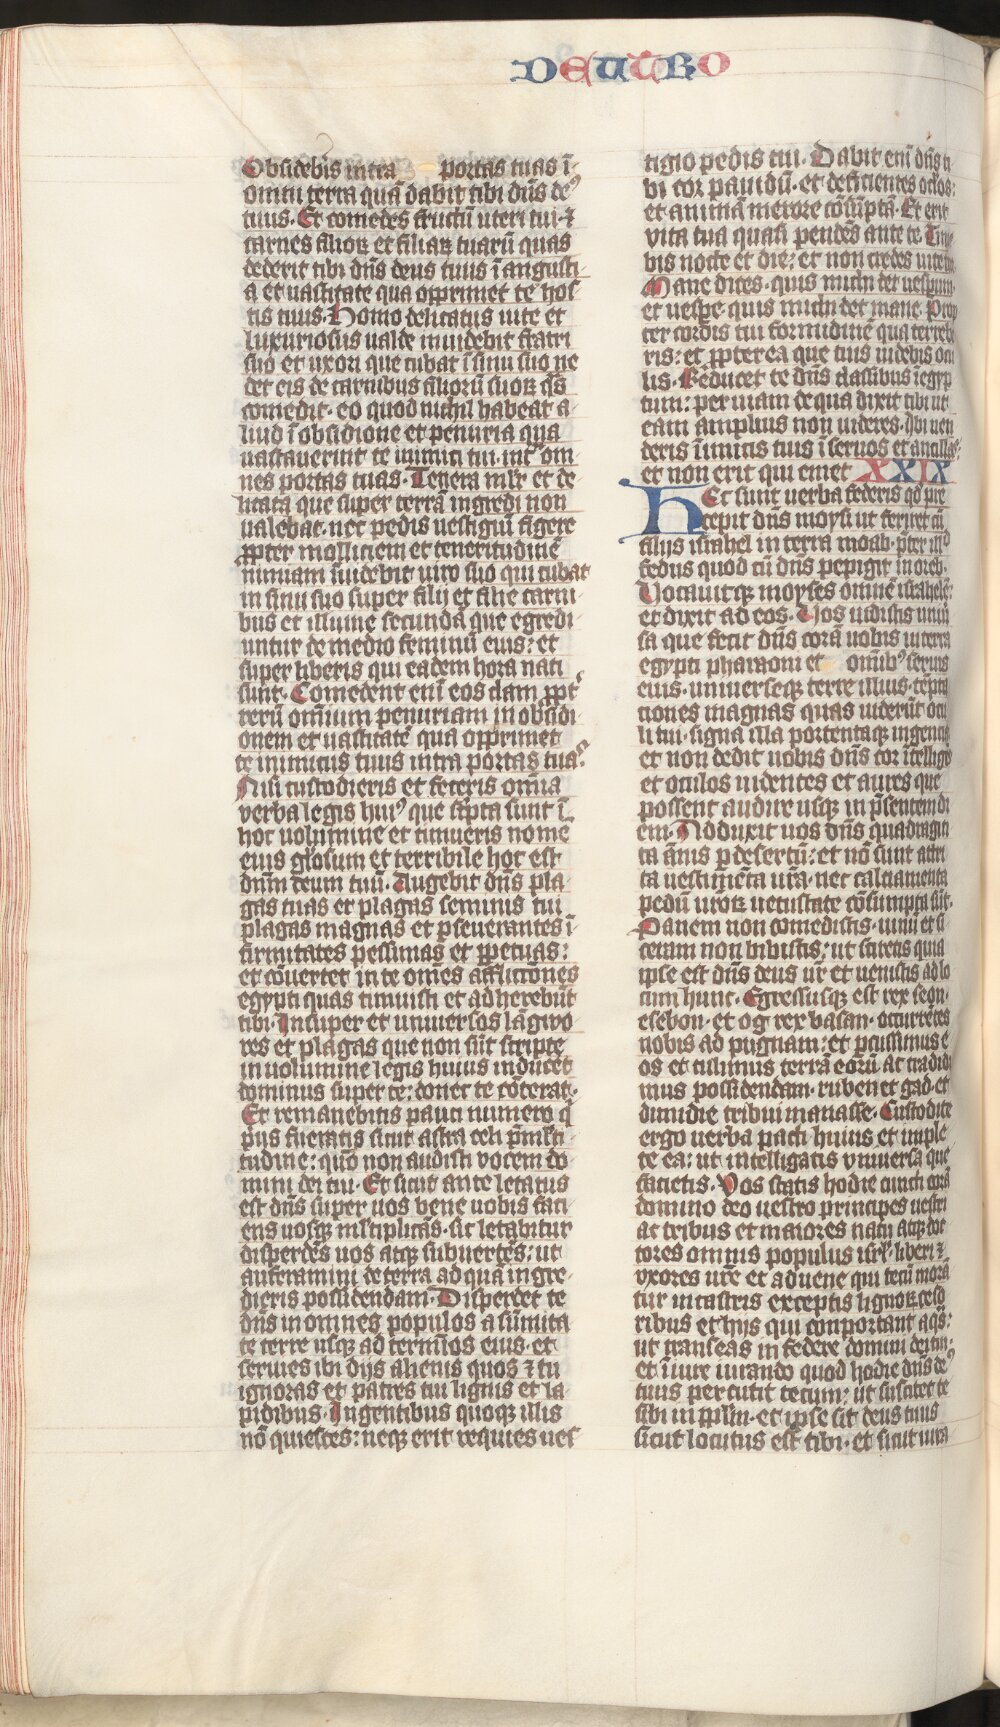 DEUTRO
Obsidebis intra portas tuas ī
omni terra quā dabit tibi dn̄s deꝰ
tuus. Et comedes fructū uteri tui ⁊
carnes filioꝝ et filiaꝝ tuarū quas
dederit tibi dn̄s deus tuus ī angusti
a et uastitate qua opprimet te hos
tis tuus. Homo delicatus uite et
luxuriosus ualde inuidebit fratri
suo et uxori que cubat ī sinu suo ne
det eis de carnibus filiorū suoꝝ q̄s
comedit. eo quod nichil habeat a
liud ī obsidione et penuria qua
uastauerint te inimici tui. intᵃ om
nes portas tuas. Tenera ml̄r et de
licata que super terrā ingredi non
ualebat. nec pedis uestigiū figere
ꝓpter molliciem et teneritudinē
nimiam īuidebit uiro suo qui cubat
in sinu suo super filij et filie carni
bus et illuuie secundaꝝ que egredi
untur de medio feminū eius: et
super liberis qui eadem hora nati
sunt. Comedent enī eos clam ꝓpt̄
rerū omīum penuriam in obsidi
onem et uastitatē qua opprimet
te inimicus tuus intra portas tuaˢ.
Nisi custodieris et feceris omīa
verba legis huiꝰ que sc̄pta sunt ī
hoc uolumine et timueris nomē
eius gl̄osum et terribile hoc est
dn̄m deum tuū. Augebit dn̄s pla
gas tuas et plagas seminis tui
plagas magnas et ꝑseuerantes ī
firmitates pessimas et ꝑpetuas:
et cōuertet in te om̄es afflictōnes
egypti quas timuisti et adherebūt
tibi. Insuper et uniuersos lāgwo
res et plagas que non sūt scripte
in uolumine legis huius inducet
dominus super te: donec te cōterat.
Et remanebitis pauci numero q̄
pͥus fueratis sicut astra celi p̄ ml̄ti
tudine: quō non audisti vocem do
mini dei tui. Et sicut ante letatus
est dn̄s super uos bene uobis faci
ens uosqꝫ ml̄tiplicās. sic letabitur
disperdēs uos atqꝫ subuertēs: ut
auferamini de terra ad quā ingre
dieris possidendam. Disperdet te
dn̄s in omnes populos a sūmita
te terre usqꝫ ad termīos eius. et
seruies ibi dijs alienis quos ⁊ tu
ignoras et patres tui lignis et la
pidibus. In gentibus quoqꝫ illis
nō quiesces: neqꝫ erit requies ues
tigio pedis tui. Dabit enī dn̄s ti
bi cor pauidū. et deficientes oclōs:
et animā merore cōsūptā. Et erit
vita tua quasi pendēs ante te. Time
bis nocte et die: et non credes uite tue.
Mane dices. quis michi det uesperū.
et uesꝑe quis michi det mane. Prop
ter cordis tui formidinē qua terrebe
ris: et ꝓpterea que tuis uidebis ocu
lis. Reducet te dn̄s classibus ī egyp
tum: per uiam de qua dixit tibi ut
eam amplius non uideres. Ibi uen
deris īimicis tuis ī seruos et ancillas:
et non erit qui emet XXIX
Hec sunt uerba federis qd̄ pre
cepit dn̄s moysi ut feriret cū
filijs israhel in terra moab. p̄ter illᵈ
fedus quod cū dn̄s pepigit in oreb.
Vocauitqꝫ moyses omnē israhelē:
et dixit ad eos. Vos uidistis uniū
sa que fecit dn̄s corā uobis in terra
egypti pharaoni et omībꝰ seruis
eius. uniuerseqꝫ terre illius. tēpta
ciones magnas quas uiderūt ocu
li tui. signa illa portentaqꝫ ingencia
et non dedit uobis dn̄s cor ītelligēs
et oculos uidentes et aures que
possent audire usqꝫ in p̄sentem di
em. Adduxit uos dn̄s quadraginta
ta ānis ꝑ desertū: et nō sunt attri
ta uestimēta ur̄a. nec calciamenta
pedū uroꝝ uetustate cōsumpta sūt.
Panem non comedistis. uinū et si
ceram non bibistis: ut sciretis quia
ipse est dn̄s deus ur̄ et uenistis ad lo
cum hunc. Egressusqꝫ est rex seon.
esebon. et og rex basan. occurrētes
nobis ad pugnam: et ꝑcussimus e
os et tulimus terrā eorū ac tradidi
mus possidendam. ruben et gad. et
dimidie tribui manasse. Custodite
ergo uerba pacti huius et imple
te ea: ut intelligatis vniuersa que
facietis. Vos statis hodie cuncti corā
domino deo uestro principes uestri
ac tribus et maiores natu atqꝫ doc
tores omnis populus isrl̄. liberi ⁊
vxores ur̄e et aduene qui tecū morā
tur in castris exceptis lignoꝝ cesō
ribus et hijs qui conportant aq̄s:
ut transeas in federe domini dei tui:
et ī iure iurando quod hodie dn̄s deꝰ
tuus percutit tecum: ut suscitet te
sibi in ꝓplm̄. et ipse sit deus tuus
sicut locutus est tibi. et sicut iura